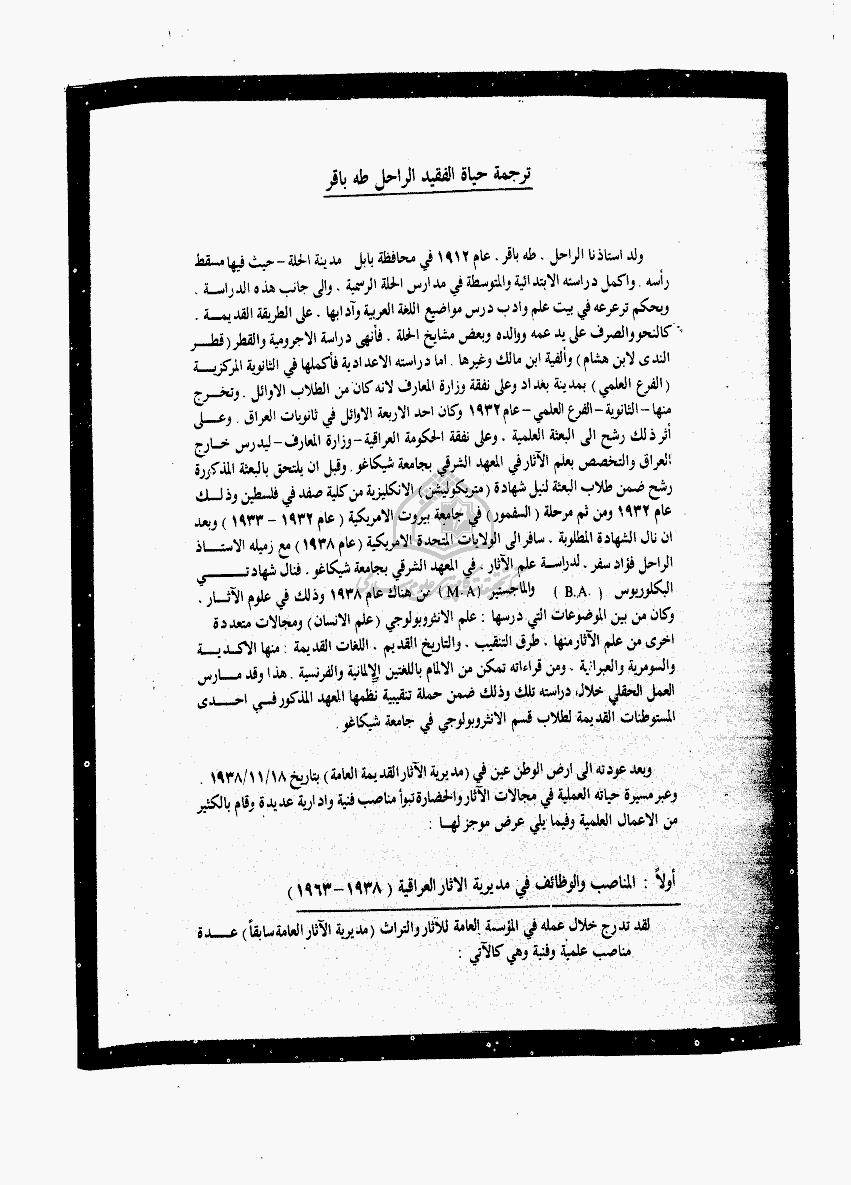 ترجمة حياة الفقيد الراحل طه باقر
ولد استاذنا الراحل . طه باقر . عام ١٩١٢ في محافظة بابل مدينة الحلة - حيث فيها مسقط
رأسه . واكمل دراسته الابتدائية والمتوسطة في مدارس الحلة الرسمية . والى جانب هذه الدراسة .
وبحكم ترعرعه في بيت علم وادب درس مواضيع اللغة العربية وآدابها . على الطريقة القديمة .
كالنحو والصرف على يد عمه ووالده وبعض مشايخ الحلة . فأنهى دراسة الاجرومية والقطر ( قطر
الندى لابن هشام ) وألفية ابن مالك وغيرها . اما دراسته الاعدادية فأكملها في الثانوية المركزية
( الفرع العلمي ) بمدينة بغداد وعلى نفقة وزارة المعارف لانه كان من الطلاب الاوائل . وتخرج
منها - الثانوية - الفرع العلمي - عام ١٩٣٢ وكان احد الاربعة الاوائل في ثانويات العراق . وعلى
أثر ذلك رشح الى البعثة العلمية . وعلى نفقة الحكومة العراقية - وزارة المعارف - ليدرس خارج
العراق والتخصص بعلم الآثار في المعهد الشرقي بجامعة شيكاغو . وقبل ان يلتحق بالبعثة المذكورة
رشح ضمن طلاب البعثة لنيل شهادة ( متريكوليشن ) الانكليزية من كلية صفد في فلسطين وذلك
عام ١٩٣٢ ومن ثم مرحلة ( السفمور ) في جامعة بيروت الامريكية ( عام ١٩٣٢ - ١٩٣٣ ) وبعد
ان نال الشهادة المطلوبة . سافر الى الولايات المتحدة الامريكية ( عام ١٩٣٨ ) مع زميله الاستاذ
الراحل فؤاد سفر . لدراسة علم الآثار . في المعهد الشرقي بجامعة شيكاغو . فنال شهادتي
البكلوريوس ( B.A. ) والماجستير ( M.A ) من هناك عام ١٩٣٨ وذلك في علوم الآثار .
وكان من بين الموضوعات التي درسها : علم الانثروبولوجي ( علم الانسان ) ومجالات متعددة
اخرى من علم الآثار منها . طرق التنقيب . والتاريخ القديم . اللغات القديمة : منها الاكدية
والسومرية والعبرانية . ومن قراءاته تمكن من الالمام باللغتين الالمانية والفرنسية . هذا وقد مارس
العمل الحقلي خلال دراسته تلك وذلك ضمن حملة تنقيبية نظمها المعهد المذكور في احدى
المستوطنات القديمة لطلاب قسم الانثروبولوجي في جامعة شيكاغو .
وبعد عودته الى ارض الوطن عين في ( مديرية الآثار القديمة العامة ) بتاريخ ١٩٣٨/١١/١٨ .
وعبر مسيرة حياته العملية في مجالات الآثار والحضارة تبوأ مناصب فنية وادارية عديدة وقام بالكثير
من الاعمال العلمية وفيما يلي عرض موجز لها :
أولاً : المناصب والوظائف في مديرية الاثار العراقية ( ١٩٣٨ - ١٩٦٣ )
لقد تدرج خلال عمله في المؤسسة العامة للآثار والتراث ( مديرية الآثار العامة سابقاً ) عدة
مناصب علمية وفنية وهي كالآتي :